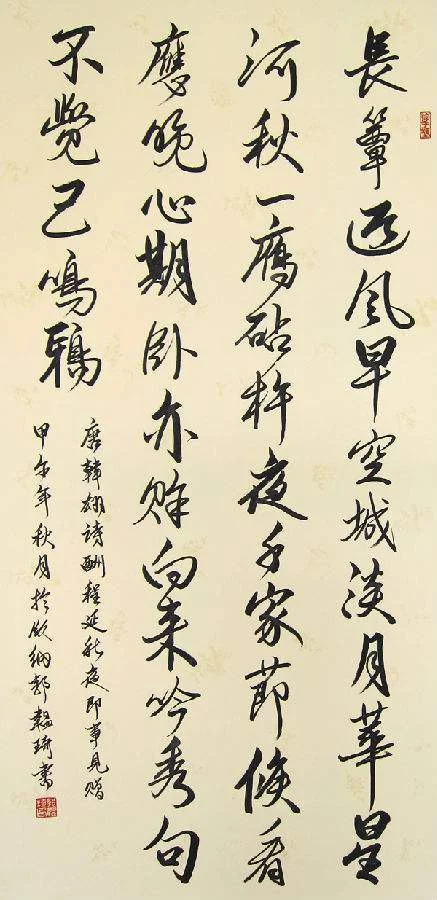 長簟迎风早空城淡月華星
河秋一鴈砧杵夜千家莭候看
應晚心期卧亦賒向来吟秀句
不覺已鳴鴉
唐韓翃诗酬程延秋夜即事見贈
甲午年秋月於欣納琦書